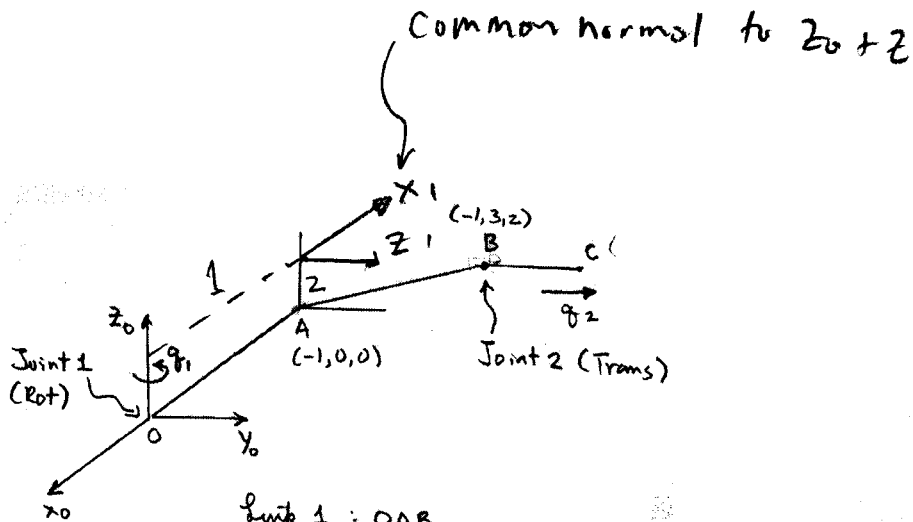 Common normal to Z₀ + Z
X₁
(-1,3,2)
Z₁
B
C (
1
2
q₂
Z₀
A
q₁
(-1,0,0)
Joint 2 (Trans)
Joint 1
(Rot)
O
Y₀
X₀
Link 1 : OAB